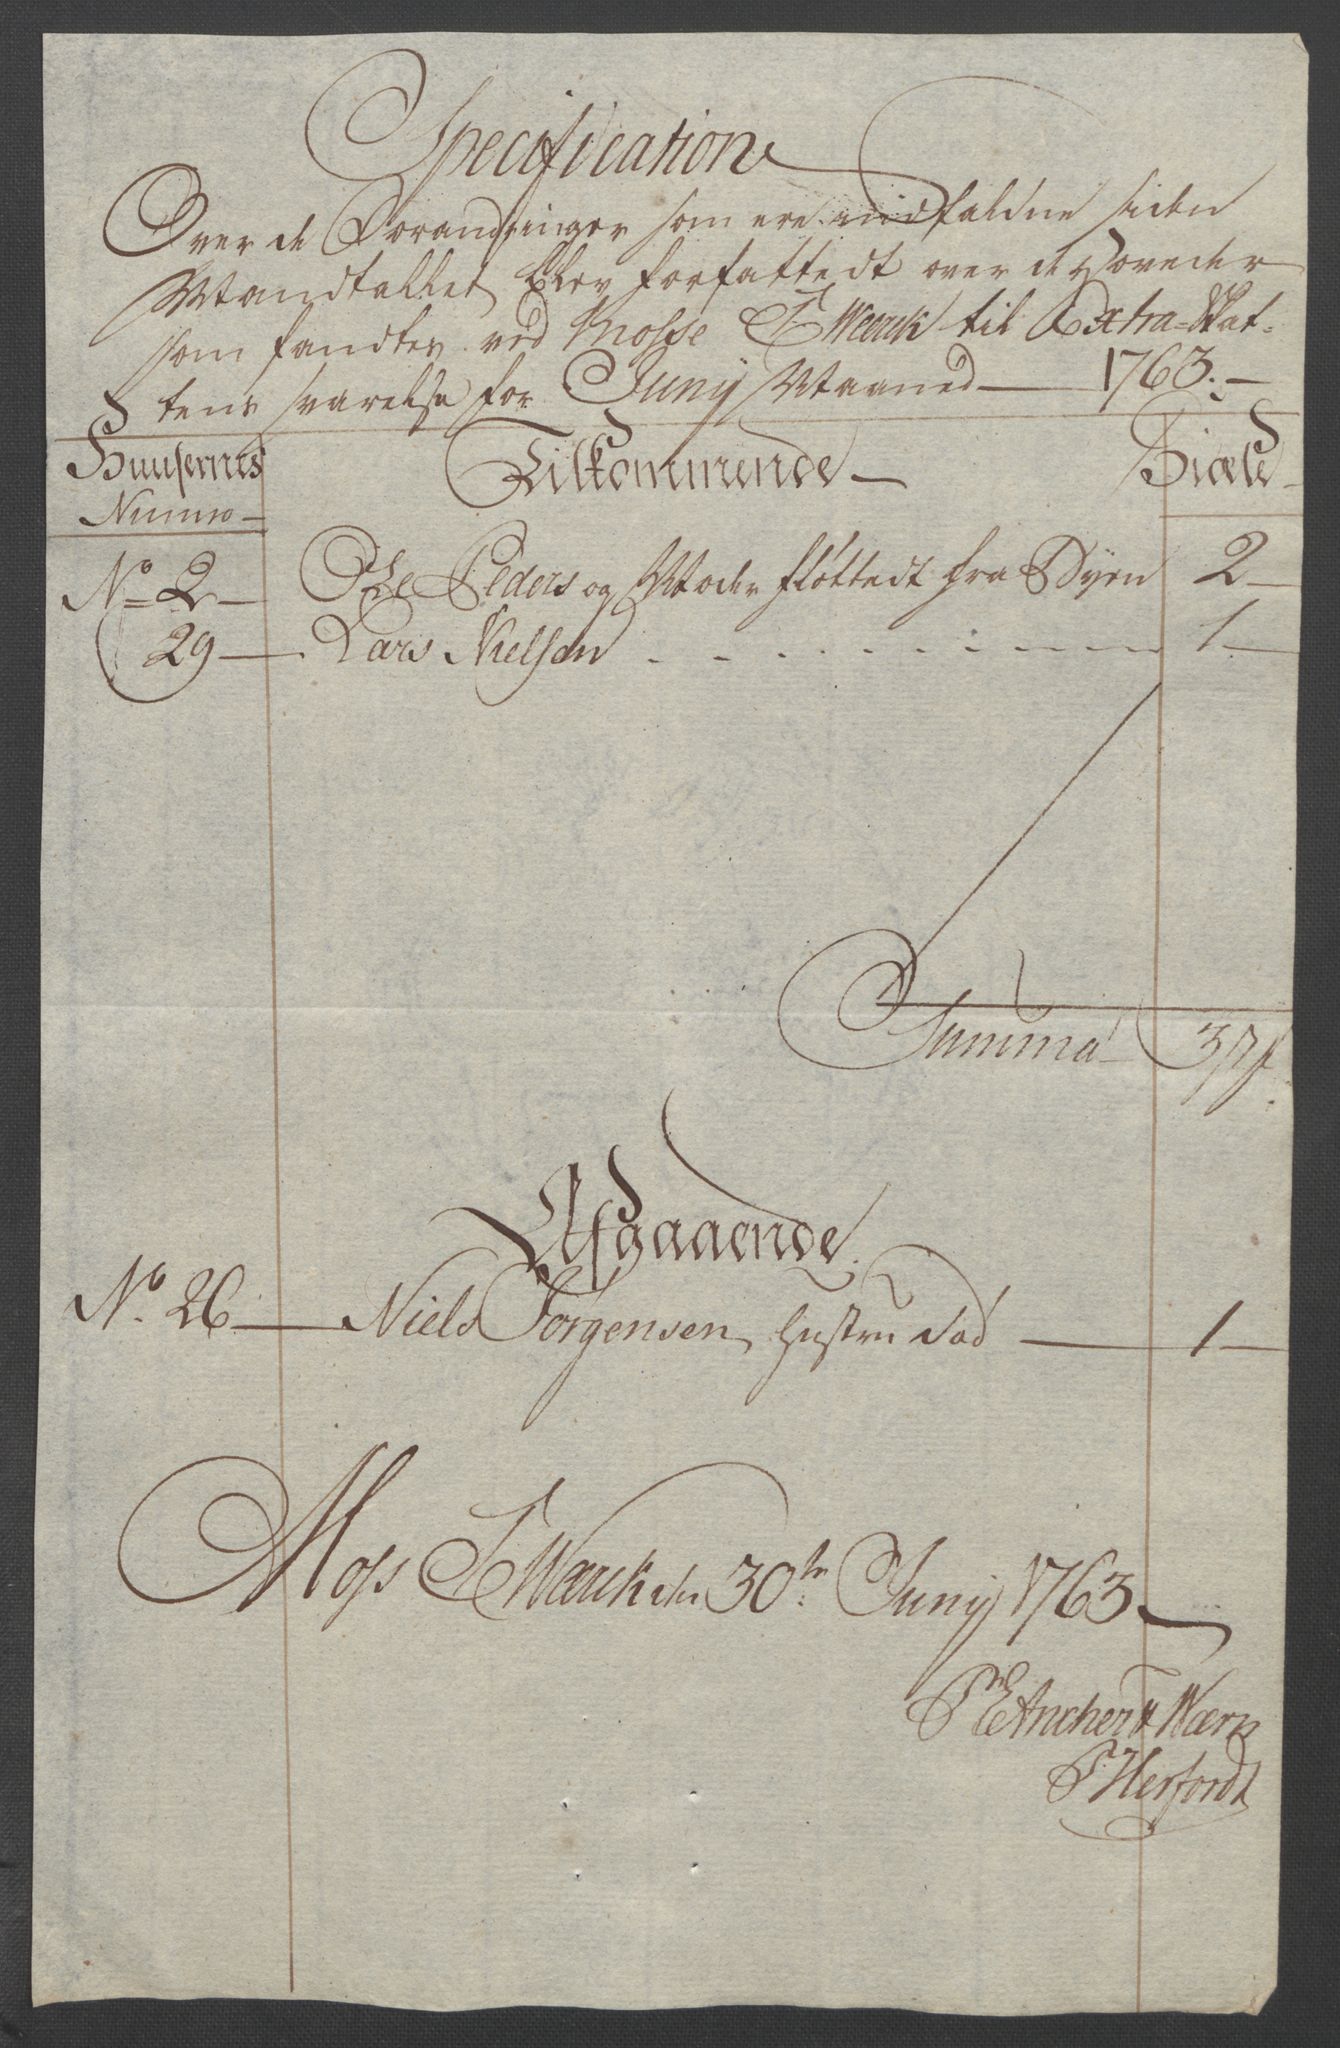 Specification
Over de Forandringer som ere indfaldne siden
Mandtallet blev forfattedt over de Hoveder
som fandtes ved Mosse J Werck til Extra=Skat-
tens svarelse for Juny Maaned 1763.
Huusernes Numro Tilkommende Siæle
No 2 Ole Peders og Moder fløttedt fra Byen 2
29 Lars Nielsen 1
Summa 3
Afgaaende
No. 26 Niels Jørgensen hustru død 1
Moss J Werck den 30te Juny 1763
Pr E Ancher & Wærn
P Herfordt